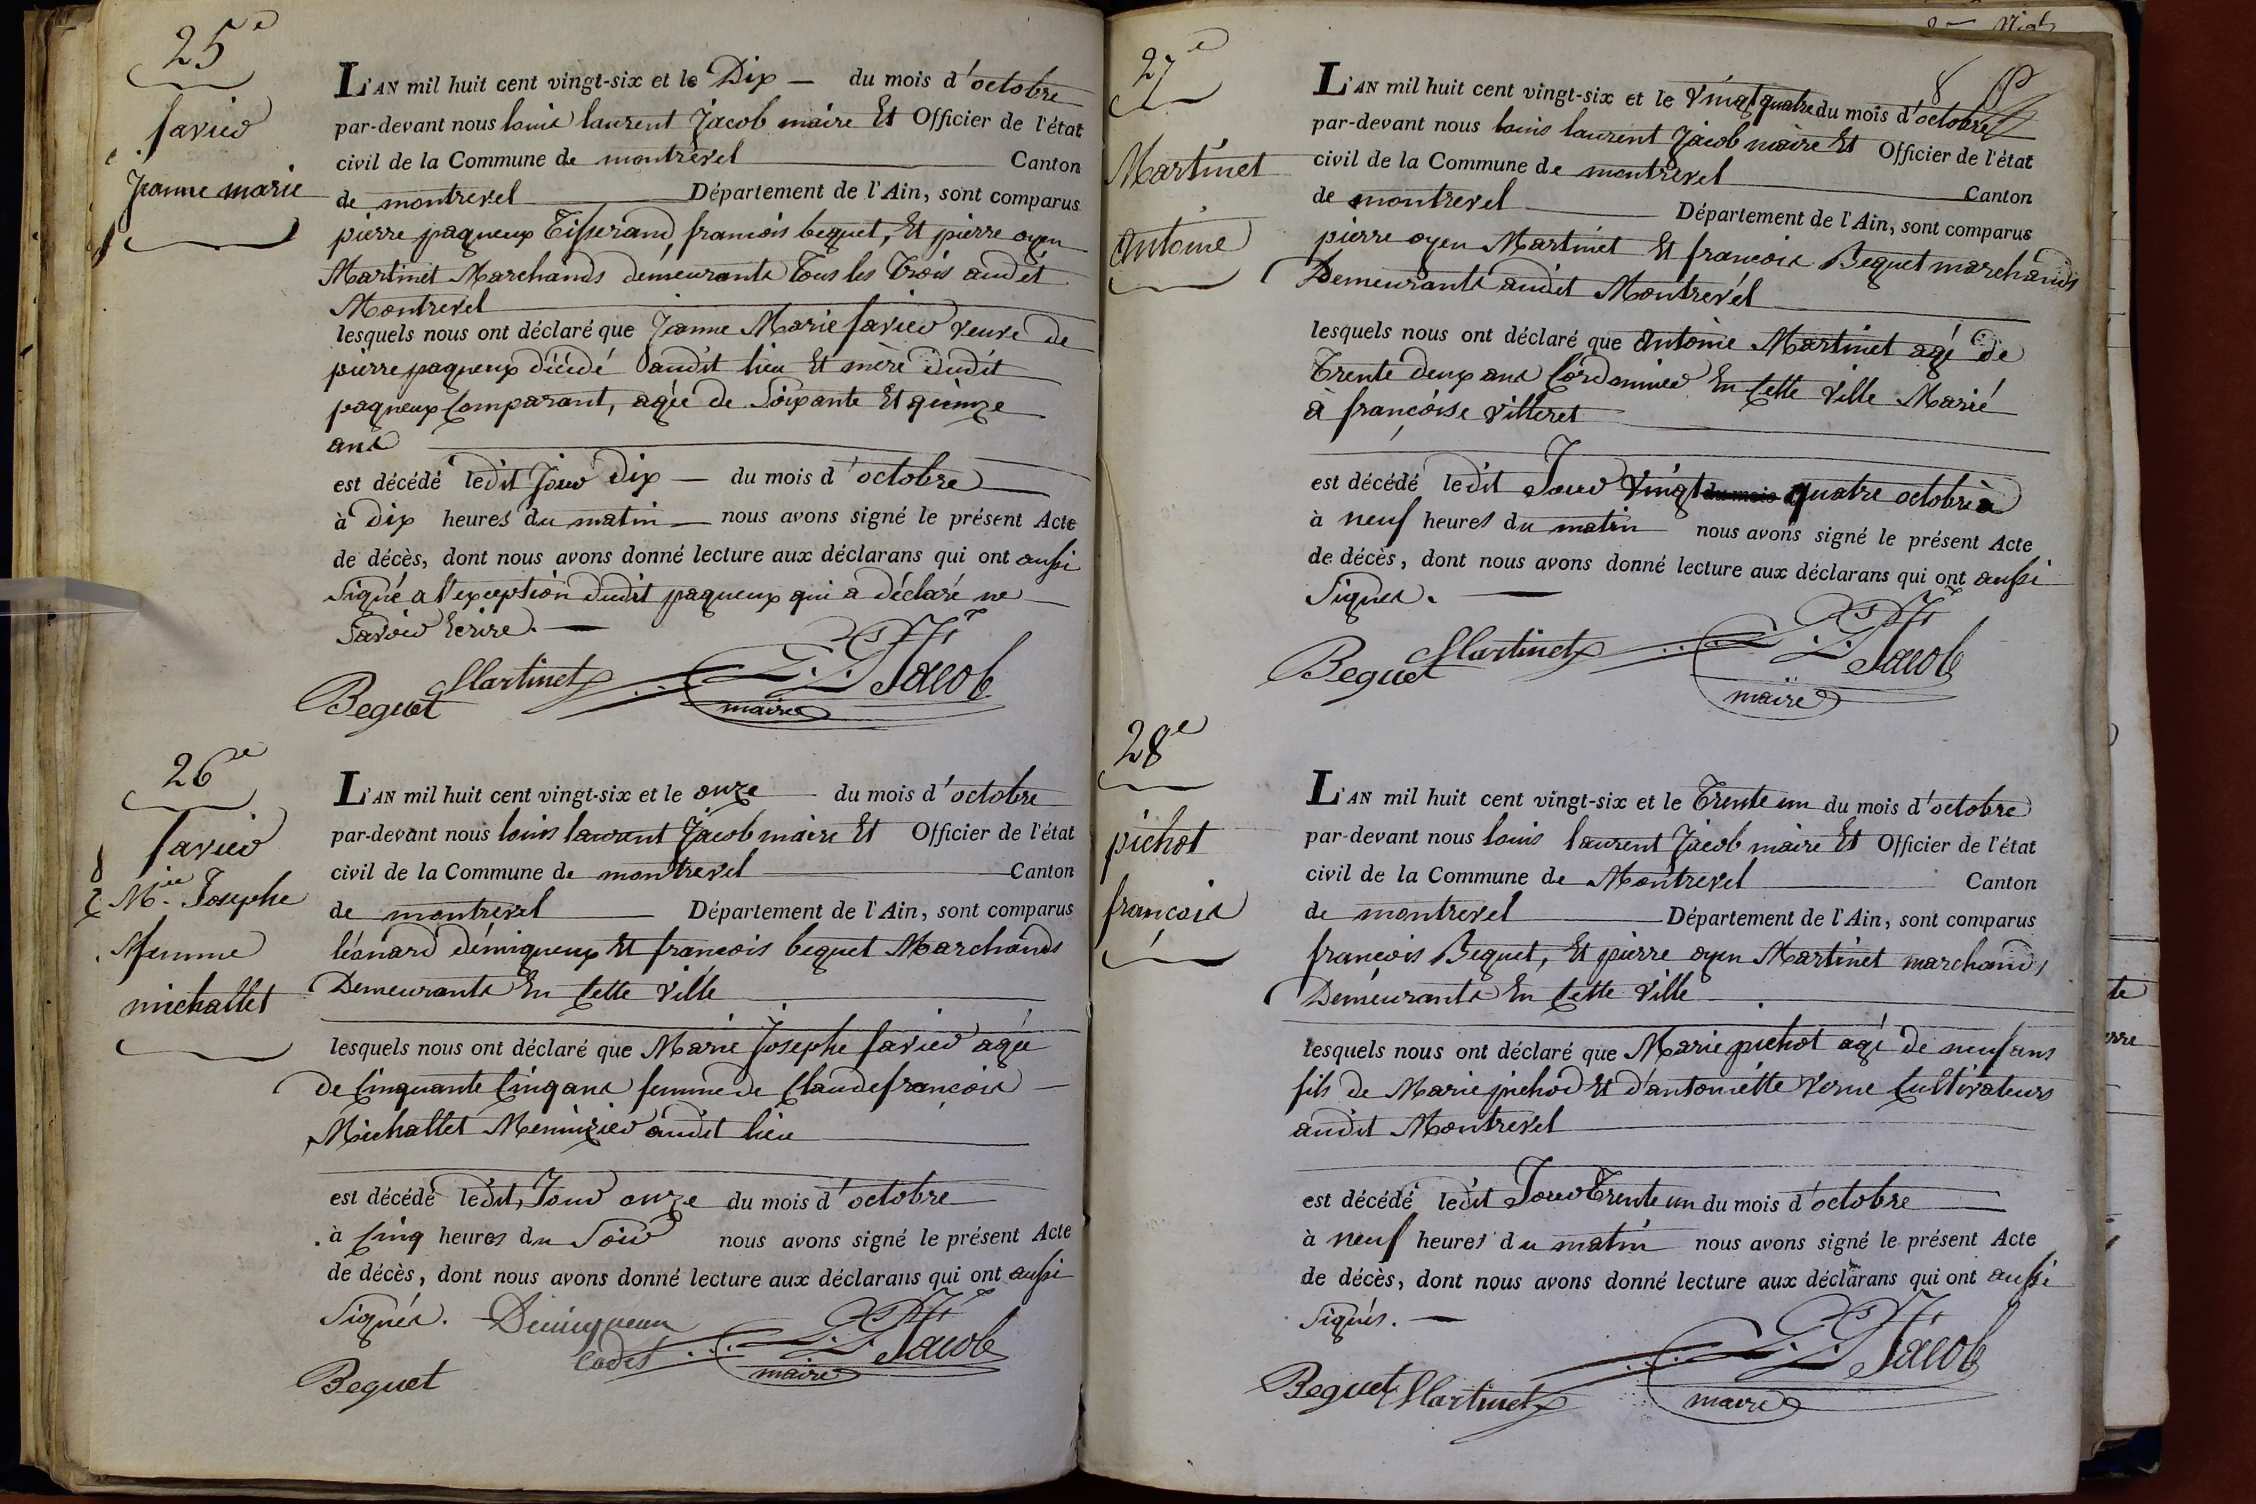 25e
favier
Jeanne marie
L'AN mil huit cent vingt-six et le Dix du mois d'octobre
par-devant nous louis laurent Jacob maire Et Officier de l'état
civil de la Commune de montrevel Canton
de montrevel Département de l'Ain, sont comparus
pierre paqueux Tisserand, francois bequet, Et pierre oyen
Martinet Marchands demeurants tous les trois audit
Montrevel
lesquels nous ont déclaré que Jeanne Marie favier veuve de
pierre paqueux décédé audit lieu Et mere dudit
paqueux Comparant, agée de Soixante Et quinze
ans
est décédé ledit Jour dix du mois d'octobre
à dix heures du matin nous avons signé le présent Acte
de décès, dont nous avons donné lecture aux déclarans qui ont aussi
signé a l'exception dudit paqueux qui a déclaré ne
Savoir Ecrire.
Bequet Martinet L. L. Jacob
maire
26e
favier
Mie Josephe
femme
michallet
L'AN mil huit cent vingt-six et le onze du mois d'octobre
par-devant nous louis laurent Jacob maire Et Officier de l'état
civil de la Commune de montrevel Canton
de montrevel Département de l'Ain, sont comparus
léonard démiqueux Et francois bequet Marchands
Demeurants En Cette Ville
lesquels nous ont déclaré que Marie Josephe favier agée
de Cinquante Cinq ans femme de Claude francois
Michallet Menuizier audit lieu
est décédé ledit Jour onze du mois d'octobre
à Cinq heures du Soir nous avons signé le présent Acte
de décès, dont nous avons donné lecture aux déclarans qui ont aussi
Signés. Demiqueux
cadet L. L. Jacob
Bequet maire
8
27e
Martinet
antoine
L'AN mil huit cent vingt-six et le Vingt quatre du mois d'octobre
par-devant nous louis laurent Jacob maire Et Officier de l'état
civil de la Commune de montrevel Canton
de montrevel Département de l'Ain, sont comparus
pierre oyen Martinet Et francois Bequet marchands
Demeurants audit Montrevel
lesquels nous ont déclaré que antoine Martinet agé de
Trente deux ans Cordonnier En Cette Ville Marié
à françoise Villeret
est décédé ledit Jour Vingt du mois quatre octobre à
à neuf heures du matin nous avons signé le présent Acte
de décès, dont nous avons donné lecture aux déclarans qui ont aussi
Signés.
Bequet Martinet L. L. Jacob
maire
28e
pichot
francois
L'AN mil huit cent vingt-six et le Trente un du mois d'octobre
par-devant nous louis laurent Jacob maire Et Officier de l'état
civil de la Commune de Montrevel Canton
de montrevel Département de l'Ain, sont comparus
francois Bequet, Et pierre oyen Martinet marchands
Demeurants En Cette Ville
lesquels nous ont déclaré que Marie pichot agé de neuf ans
fils de Marie pichod Et d'antoniette Verne Cultivateurs
audit Montrevel
est décédé ledit Jour Trente un du mois d'octobre
à neuf heures du matin nous avons signé le présent Acte
de décès, dont nous avons donné lecture aux déclarans qui ont aussi
Signés.
Bequet Martinet L. L. Jacob
maire